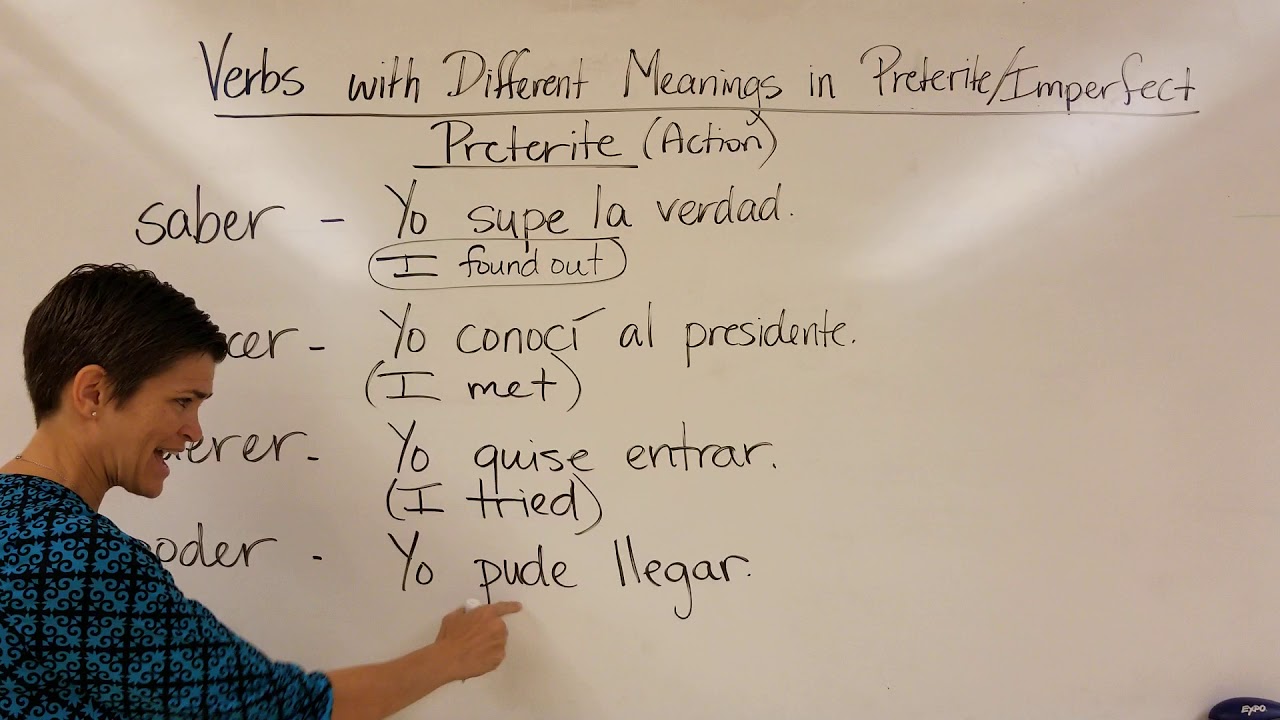 Verbs with Different Meanings in Preterite/Imperfect
Preterite (Action)
saber - Yo supe la verdad.
I found out
cer - Yo conocí al presidente.
(I met)
erer - Yo quise entrar.
(I tried)
oder - Yo pude llegar.
EXPO